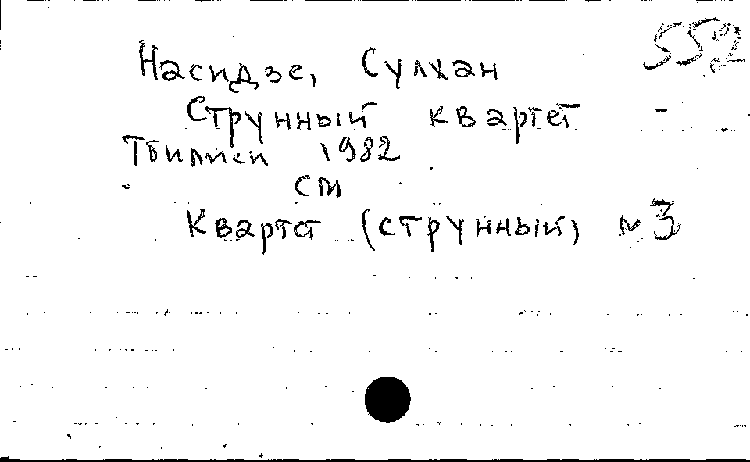 552
Насидзе, Сулхан
Струнный квартет -
Тбилиси 1982
см
Квартет (струнный) № 3